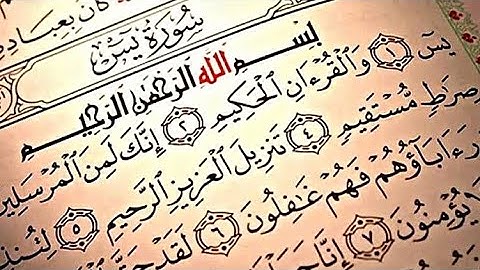 كَانَ بِعِبَادِ
سُورَةُ يسٓ
بِسْمِ اللَّهِ الرَّحْمَٰنِ الرَّحِيمِ
يسٓ ١ وَالْقُرْءَانِ الْحَكِيمِ ٢ إِنَّكَ لَمِنَ الْمُرْسَلِينَ
صِرَاطٍ مُّسْتَقِيمٍ ٤ تَنزِيلَ الْعَزِيزِ الرَّحِيمِ ٥ لِتُنذِ
رَ ءَابَآؤُهُمْ فَهُمْ غَٰفِلُونَ ٦ لَقَدْ حَقَّ
يُؤْمِنُونَ ٧ إِنَّا جَعَلْ